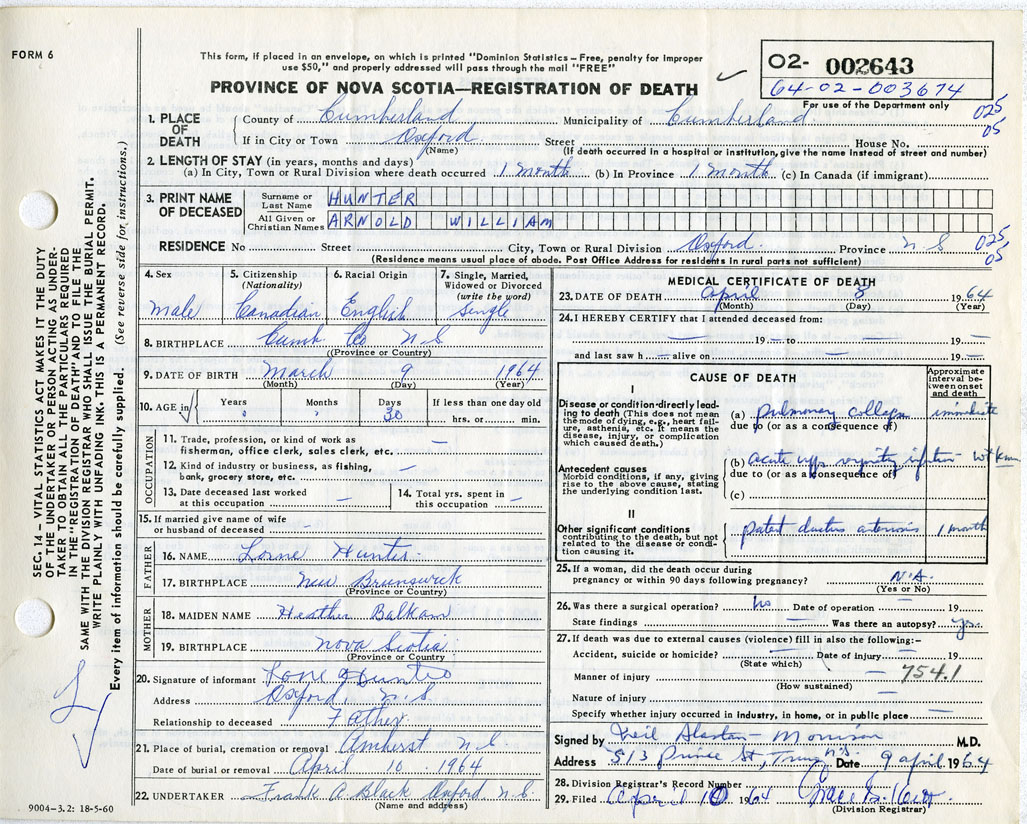 FORM 6
This form, if placed in an envelope, on which is printed "Dominion Statistics – Free, penalty for improper
use $50," and properly addressed will pass through the mail "FREE"
O2- 002643
64-02-003674
For use of the Department only
PROVINCE OF NOVA SCOTIA—REGISTRATION OF DEATH
SEC. 14 – VITAL STATISTICS ACT MAKES IT THE DUTY
OF THE UNDERTAKER OR PERSON ACTING AS UNDER-
TAKER TO OBTAIN ALL THE PARTICULARS REQUIRED
IN THE "REGISTRATION OF DEATH" AND TO FILE THE
SAME WITH THE DIVISION REGISTRAR WHO SHALL ISSUE THE BURIAL PERMIT.
WRITE PLAINLY WITH UNFADING INK. THIS IS A PERMANENT RECORD.
Every item of information should be carefully supplied. (See reverse side for instructions.)
1. PLACE OF DEATH
County of Cumberland Municipality of Cumberland 025
If in City or Town Oxford Street House No. 05
(Name) (If death occurred in a hospital or institution, give the name instead of street and number)
2. LENGTH OF STAY (in years, months and days)
(a) In City, Town or Rural Division where death occurred 1 Month (b) In Province 1 Month (c) In Canada (if immigrant)
3. PRINT NAME OF DECEASED
Surname or Last Name HUNTER
All Given or Christian Names ARNOLD WILLIAM
RESIDENCE No Street City, Town or Rural Division Oxford. Province N.S 025
(Residence means usual place of abode. Post Office Address for residents in rural parts not sufficient) 05
4. Sex
Male
5. Citizenship
(Nationality)
Canadian
6. Racial Origin
English
7. Single, Married,
Widowed or Divorced
(write the word)
Single
8. BIRTHPLACE Cumb Co N.S
(Province or Country)
9. DATE OF BIRTH March 9 1964
(Month) (Day) (Year)
10. AGE in Years Months Days 30 If less than one day old
hrs. or min.
OCCUPATION
11. Trade, profession, or kind of work as
fisherman, office clerk, sales clerk, etc. —
12. Kind of industry or business, as fishing,
bank, grocery store, etc. —
13. Date deceased last worked
at this occupation —
14. Total yrs. spent in
this occupation —
15. If married give name of wife
or husband of deceased —
FATHER
16. NAME Lorne Hunter
17. BIRTHPLACE New Brunswick
(Province or Country)
MOTHER
18. MAIDEN NAME Heather Balkan
19. BIRTHPLACE Nova Scotia
(Province or Country
20. Signature of informant Lorne Hunter
Address Oxford, N.S.
Relationship to deceased Father
21. Place of burial, cremation or removal Amherst N.S.
Date of burial or removal April 10 1964
22. UNDERTAKER Frank A Black Oxford N.S.
(Name and address)
9004-3.2: 18-5-60
MEDICAL CERTIFICATE OF DEATH
23. DATE OF DEATH April 8 1964
(Month) (Day) (Year)
24. I HEREBY CERTIFY that I attended deceased from:
— 19 — to — 19 —
and last saw h — alive on — 19 —
CAUSE OF DEATH
Approximate
interval be-
tween onset
and death
I
Disease or condition-directly lead-
ing to death (This does not mean
the mode of dying, e.g., heart fail-
ure, asthenia, etc. It means the
disease, injury, or complication
which caused death.)
(a) pulmonary collapse immediate
due to (or as a consequence of)
Antecedent causes
Morbid conditions, if any, giving
rise to the above cause, stating
the underlying condition last.
(b) acute upp respirity infection
due to (or as a consequence of)
(c)
II
Other significant conditions
contributing to the death, but not
related to the disease or condi-
tion causing it.
patent ductus arteriosis 1 month
25. If a woman, did the death occur during
pregnancy or within 90 days following pregnancy? N.A.
(Yes or No)
26. Was there a surgical operation? no Date of operation — 19
State findings Was there an autopsy? yes.
27. If death was due to external causes (violence) fill in also the following:–
Accident, suicide or homicide? Date of injury — 19
(State which)
Manner of injury — 754.1
(How sustained)
Nature of injury —
Specify whether injury occurred in Industry, in home, or in public place —
Signed by Neil Alastair Morrison M.D.
Address 513 Prince St, Truro N.S. Date 9 April 1964
28. Division Registrar's Record Number
29. Filed April 10 1964
(Division Registrar)